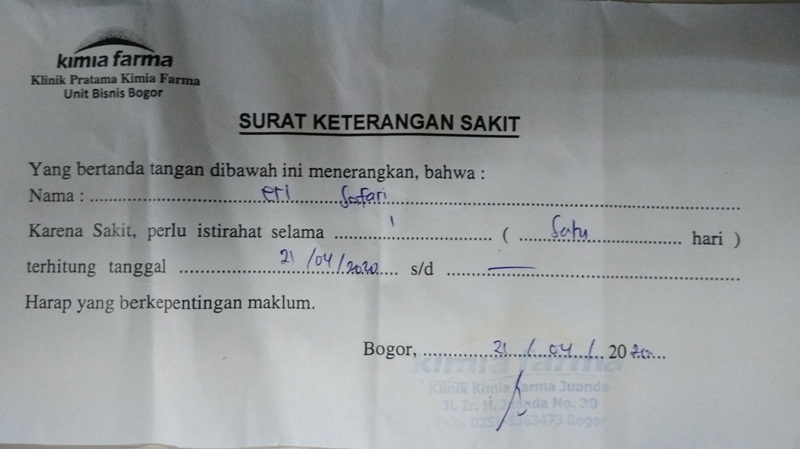 kimia farma
Klinik Pratama Kimia Farma
Unit Bisnis Bogor
SURAT KETERANGAN SAKIT
Yang bertanda tangan dibawah ini menerangkan, bahwa :
Nama : eri Safari
Karena Sakit, perlu istirahat selama 1 ( Satu hari )
terhitung tanggal 21/04/2020 s/d —
Harap yang berkepentingan maklum.
Bogor, 21/04/2020
kimia farma
Klinik Kimia Farma Juanda
Jl. Ir. H. Juanda No. 30
Bogor